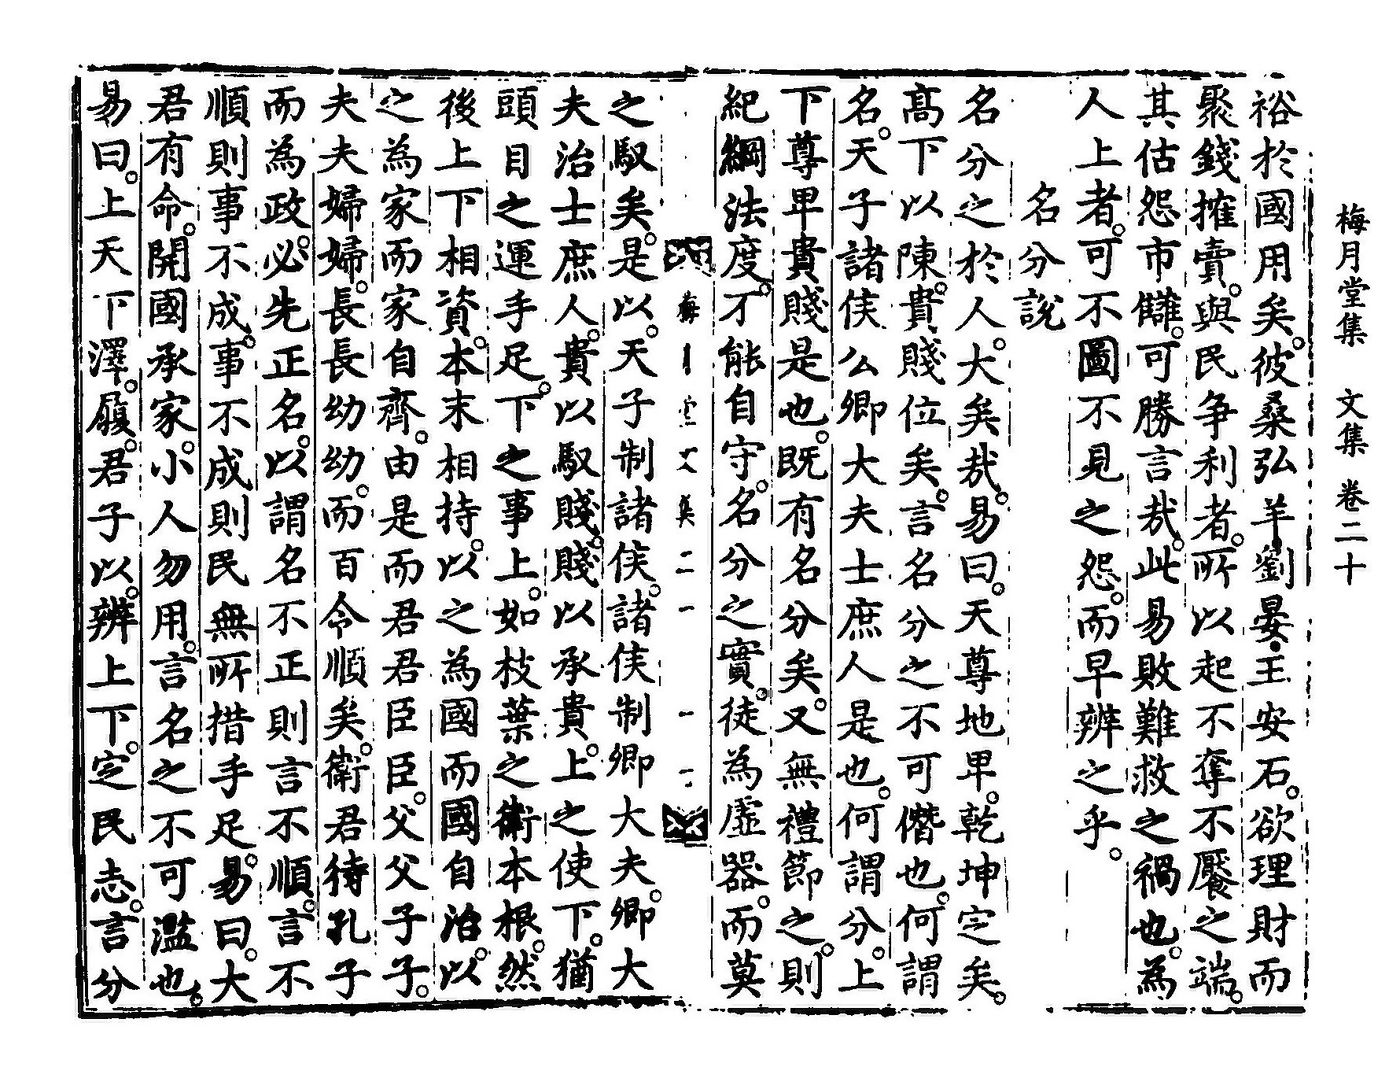 梅月堂集　文集　卷二十
裕於國用矣。彼桑弘羊劉晏·王安石。欲理財而
聚錢搉賣。與民争利者。所以起不奪不饜之端。
其估怨市讎。可勝言㦲。此易敗難救之禍也。為
人上者。可不圖不見之怨。而早辨之乎。
名分說
名分之於人。大矣㦲。易曰。天尊地𤰞。乾坤定矣。
高下以陳。貴賤位矣。言名分之不可僭也。何謂
名。天子諸侯公卿大夫士庶人是也。何謂分。上
下尊𤰞貴賤是也。既有名分矣。又無禮節之。則
紀綱法度。不能自守。名分之實。徒為虛器。而莫
之馭矣。是以。天子制諸侯。諸侯制卿大夫。卿大
夫治士庶人。貴以馭賤。賤以承貴。上之使下。猶
頭目之運手足。下之事上。如枝葉之衛本根。然
後上下相資。本末相持。以之為國而國自治。以
之為家而家自齊。由是而君君臣臣。父父子子。
夫夫婦婦。長長幼幼。而百令順矣。衛君待孔子
而為政。必先正名。以謂名不正則言不順。言不
順則事不成。事不成則民無所措手足。易曰。大
君有命。開國承家。小人勿用。言名之不可濫也。
易曰。上天下澤。履。君子以。辨上下。定民志。言分